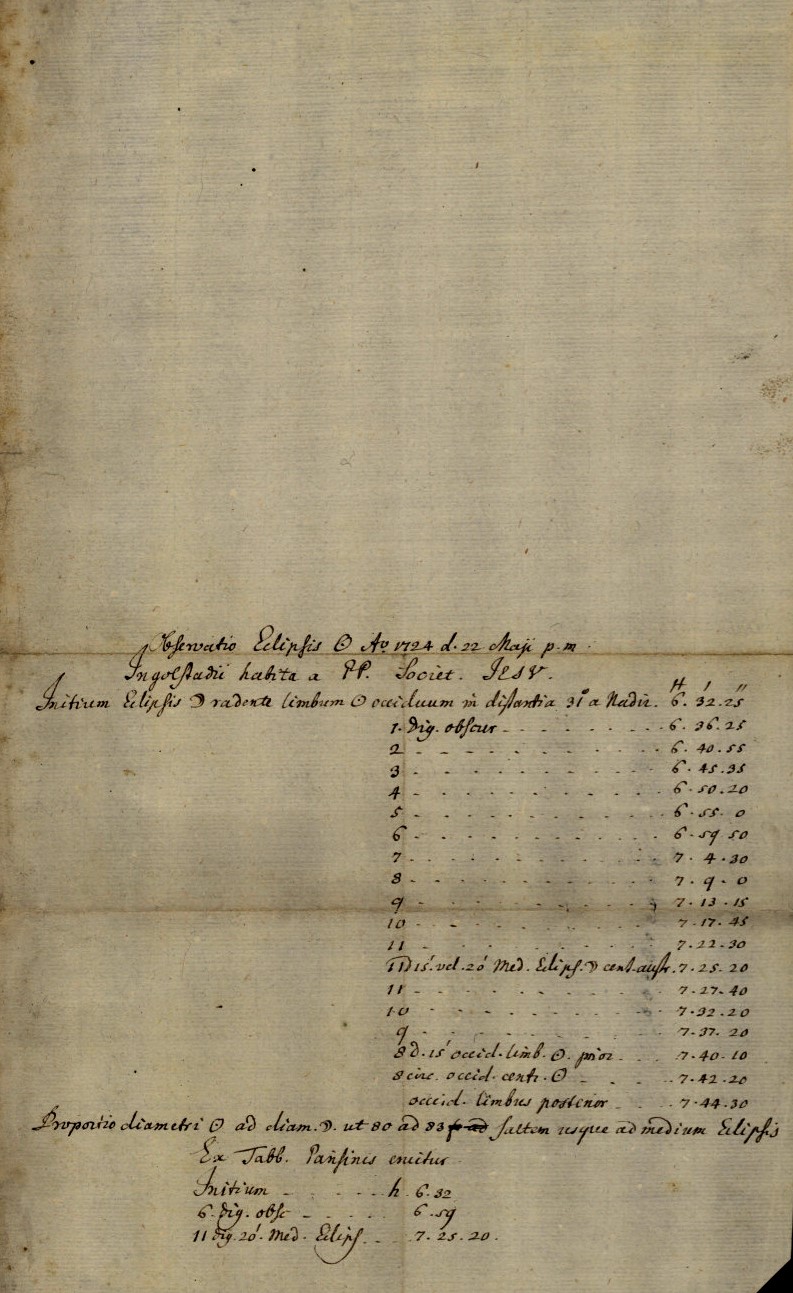 Observatio Eclipsis ☉ Aº 1724 d. 22 Maji p. m.
Ingolstadii habita a PP. Societ. JESV.
H ′ ″
Initium Eclipsis ☽ radente limbum ☉ occiduum in distantia 31º a Nadir. 6. 32.25
1. Dig. obscur - - - - - - - - - 6. 36.25
2 - - - - - - - - - - - - 6. 40.55
3 - - - - - - - - - - - - 6. 45.35
4 - - - - - - - - - - - - 6. 50.20
5 - - - - - - - - - - - - 6. 55. 0
6 - - - - - - - - - - - - 6. 59 50
7 - - - - - - - - - - - - 7. 4.30
8 - - - - - - - - - - - - 7. 9. 0
9 - - - - - - - - - - - - 7.13.15
10 - - - - - - - - - - - 7.17.45
11 - - - - - - - - - - - 7.22.30
11D 15′. vel. 20′ Med. Eclips. ☽ cent. austr. 7.25.20
11 - - - - - - - - - - - 7.27.40
10 - - - - - - - - - - - 7.32.20
9 - - - - - - - - - - - 7.37.20
8 D. 15′ occid. limb. ☉. prior - - - 7.40.10
8 circ. occid. centr. ☉ - - - - 7.42.20
occid. limbus posterior - - - 7.44.30
Proportio diametri ☉ ad diam. ☽. ut 80 ad 83 saltem usque ad medium Eclipsis
Ex Tabb. Parisinis eruitur
Initium - - - - - - h. 6.32
6. Dig. obsc - - - - - 6.59
11 Dig. 20′. Med. Eclips. - - - 7.25.20.